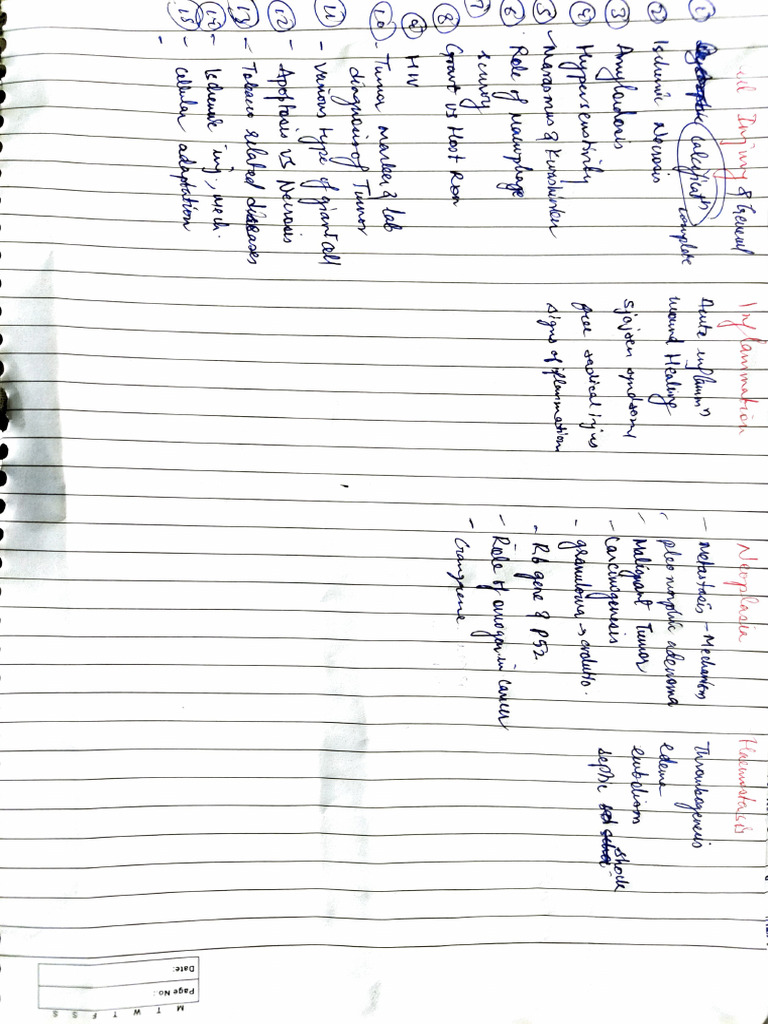 Cell Injury & General
① Calcificatn complete
② Ischemic Necrosis
③ Amyloidosis
④ Hypersensitivity
⑤ - Marasmus & Kwashiorkor
⑥ Role of Macrophage
⑦ scurvy
⑧ Graft vs Host Rxn
⑨ HIV
⑩ - Tumor marker & lab
diagnosis of Tumor
⑪ - various type of giant cell
⑫ - Apoptosis vs Necrosis
⑬ - Tobacco related diseases
⑭ - Ischemic inj, mech.
⑮ - cellular adaptation
-
Inflammation
Acute inflammn
wound Healing
Sjojren syndrome
free radical injus
signs of inflammation
Neoplasia
- Metastasis - Mechanism
- pleomorphic adenoma
- Malignant Tumor
- Carcinogenesis
- granuloma →
- Rb gene & P52
- Role of oncogen in cancer
- Gangrene
Haemostasis
Thrombogenesis
edema
embolism
septic shock
Date:
Page No.:
M T W T F S S